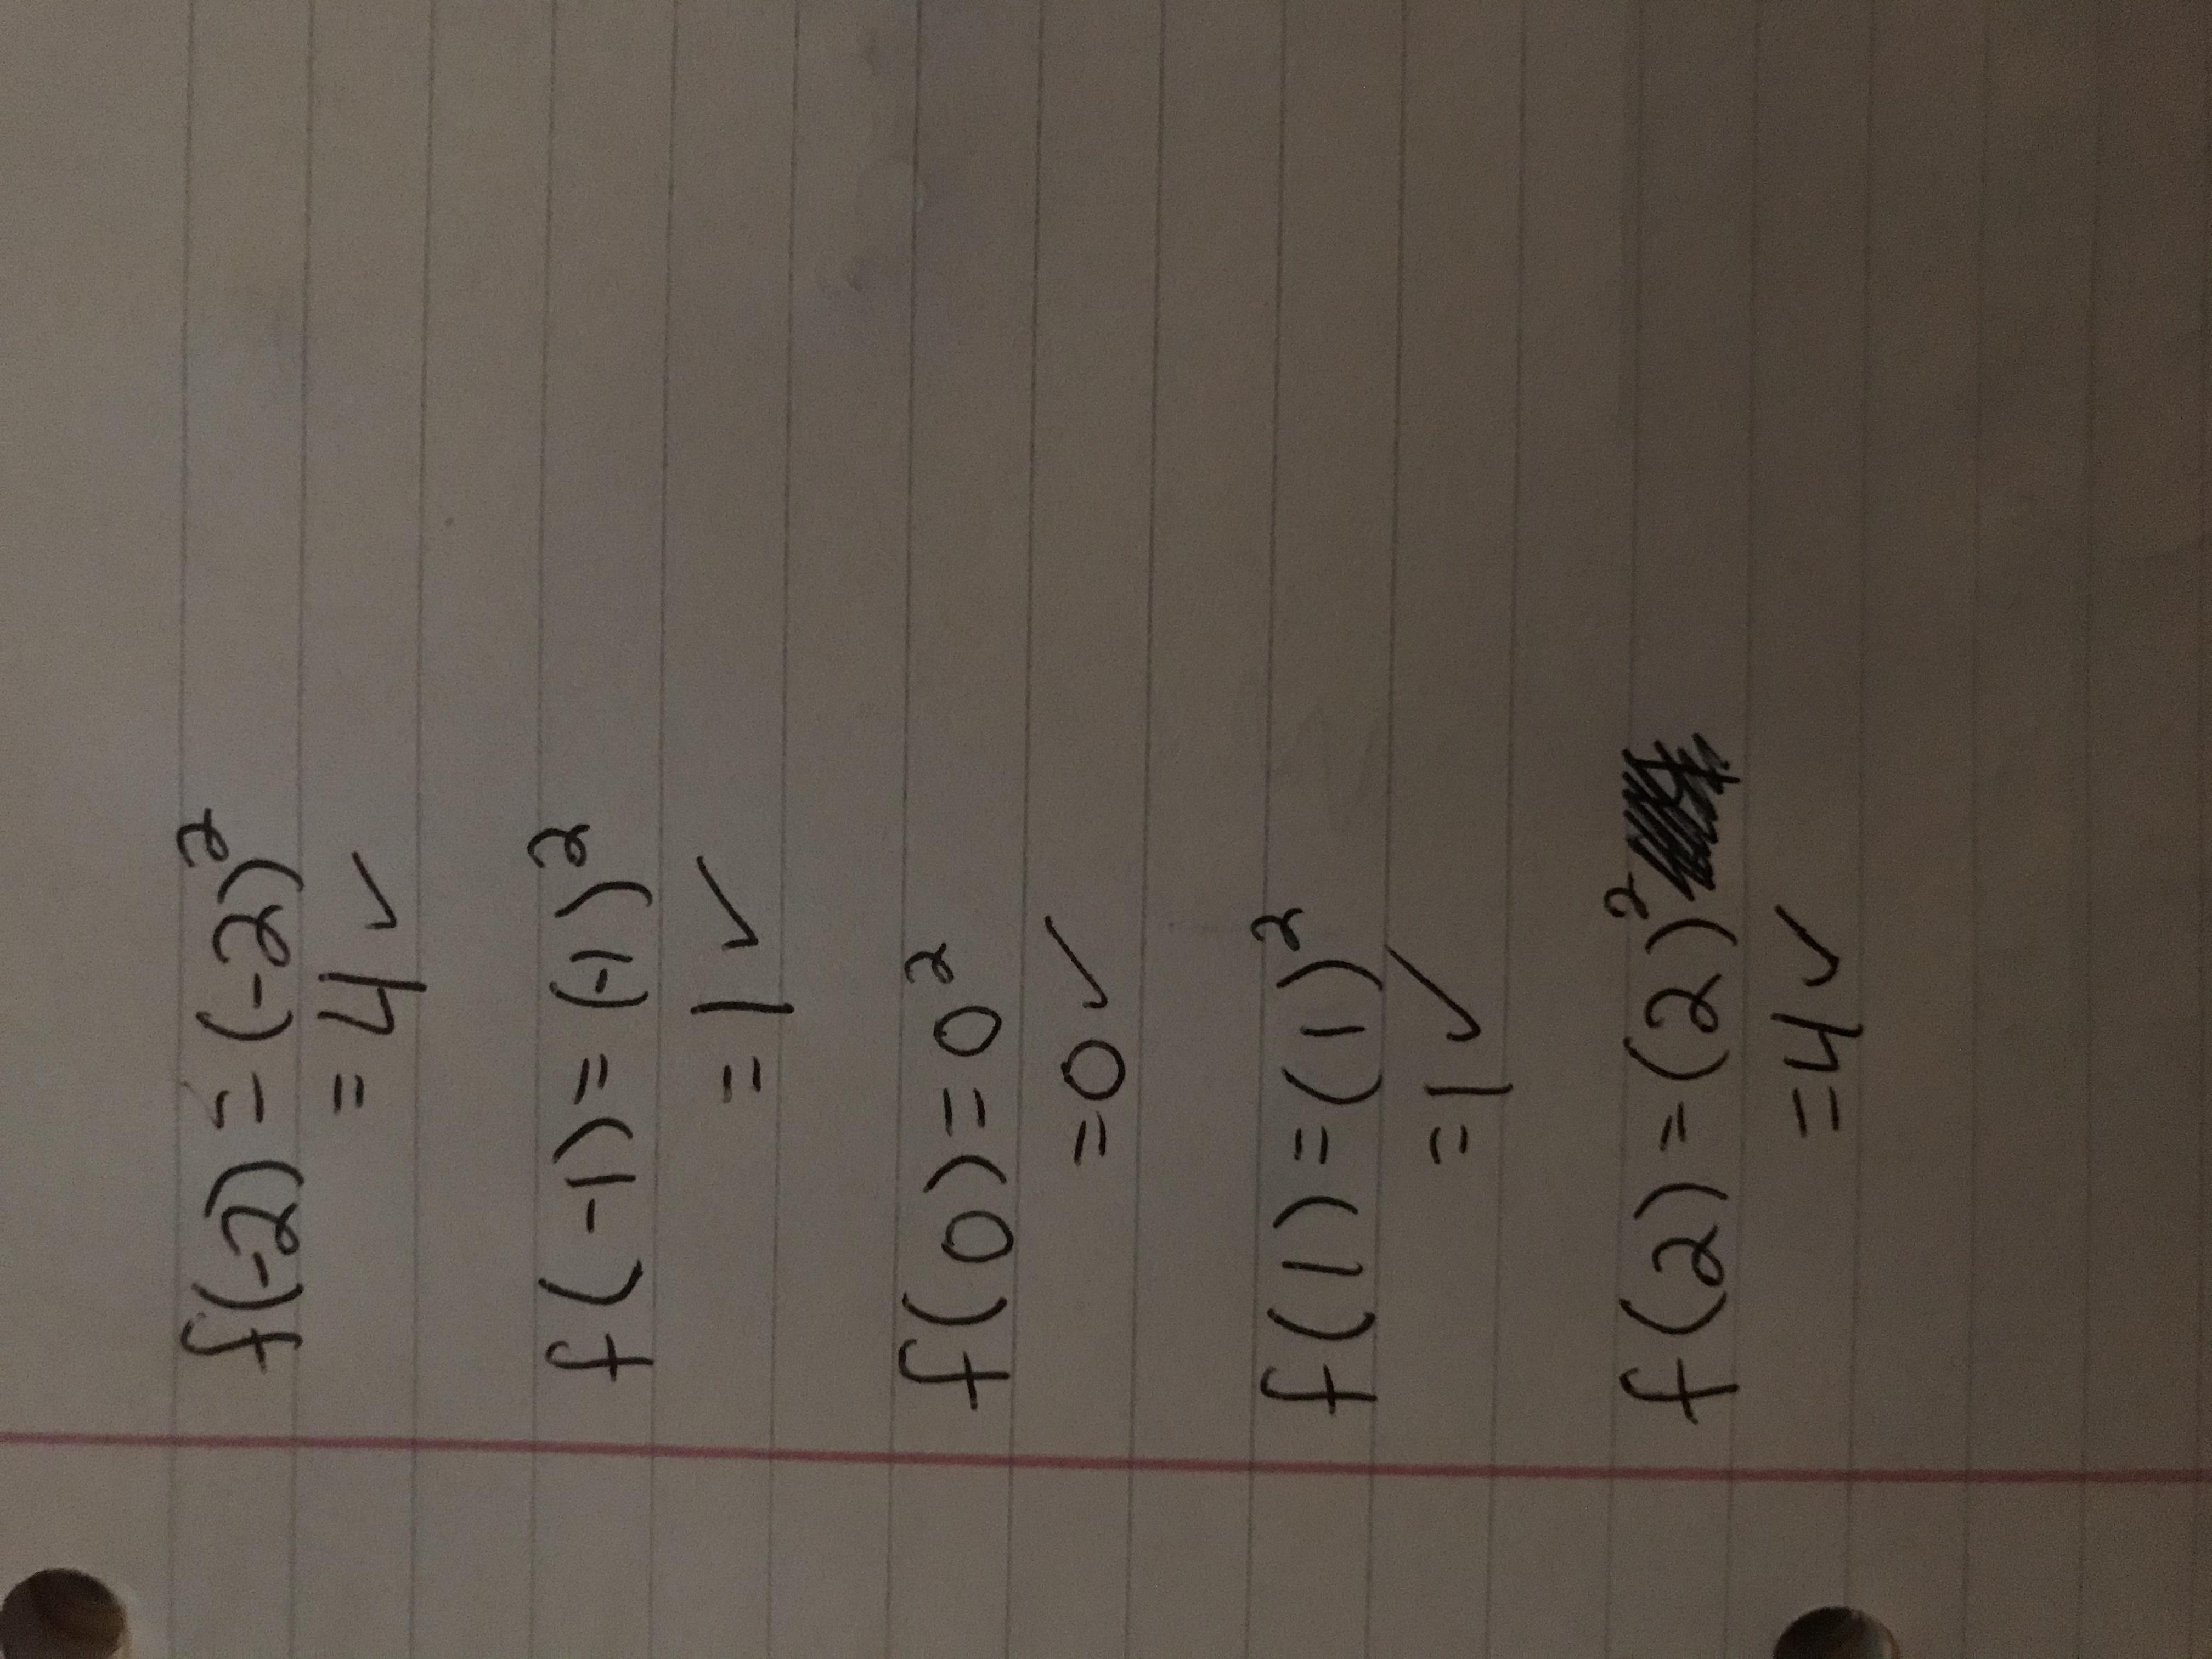 f(-2) = (-2)²
= 4 ✓
f(-1) = (-1)²
= 1 ✓
f(0) = 0²
= 0 ✓
f(1) = (1)²
= 1 ✓
f(2) = (2)²
= 4 ✓